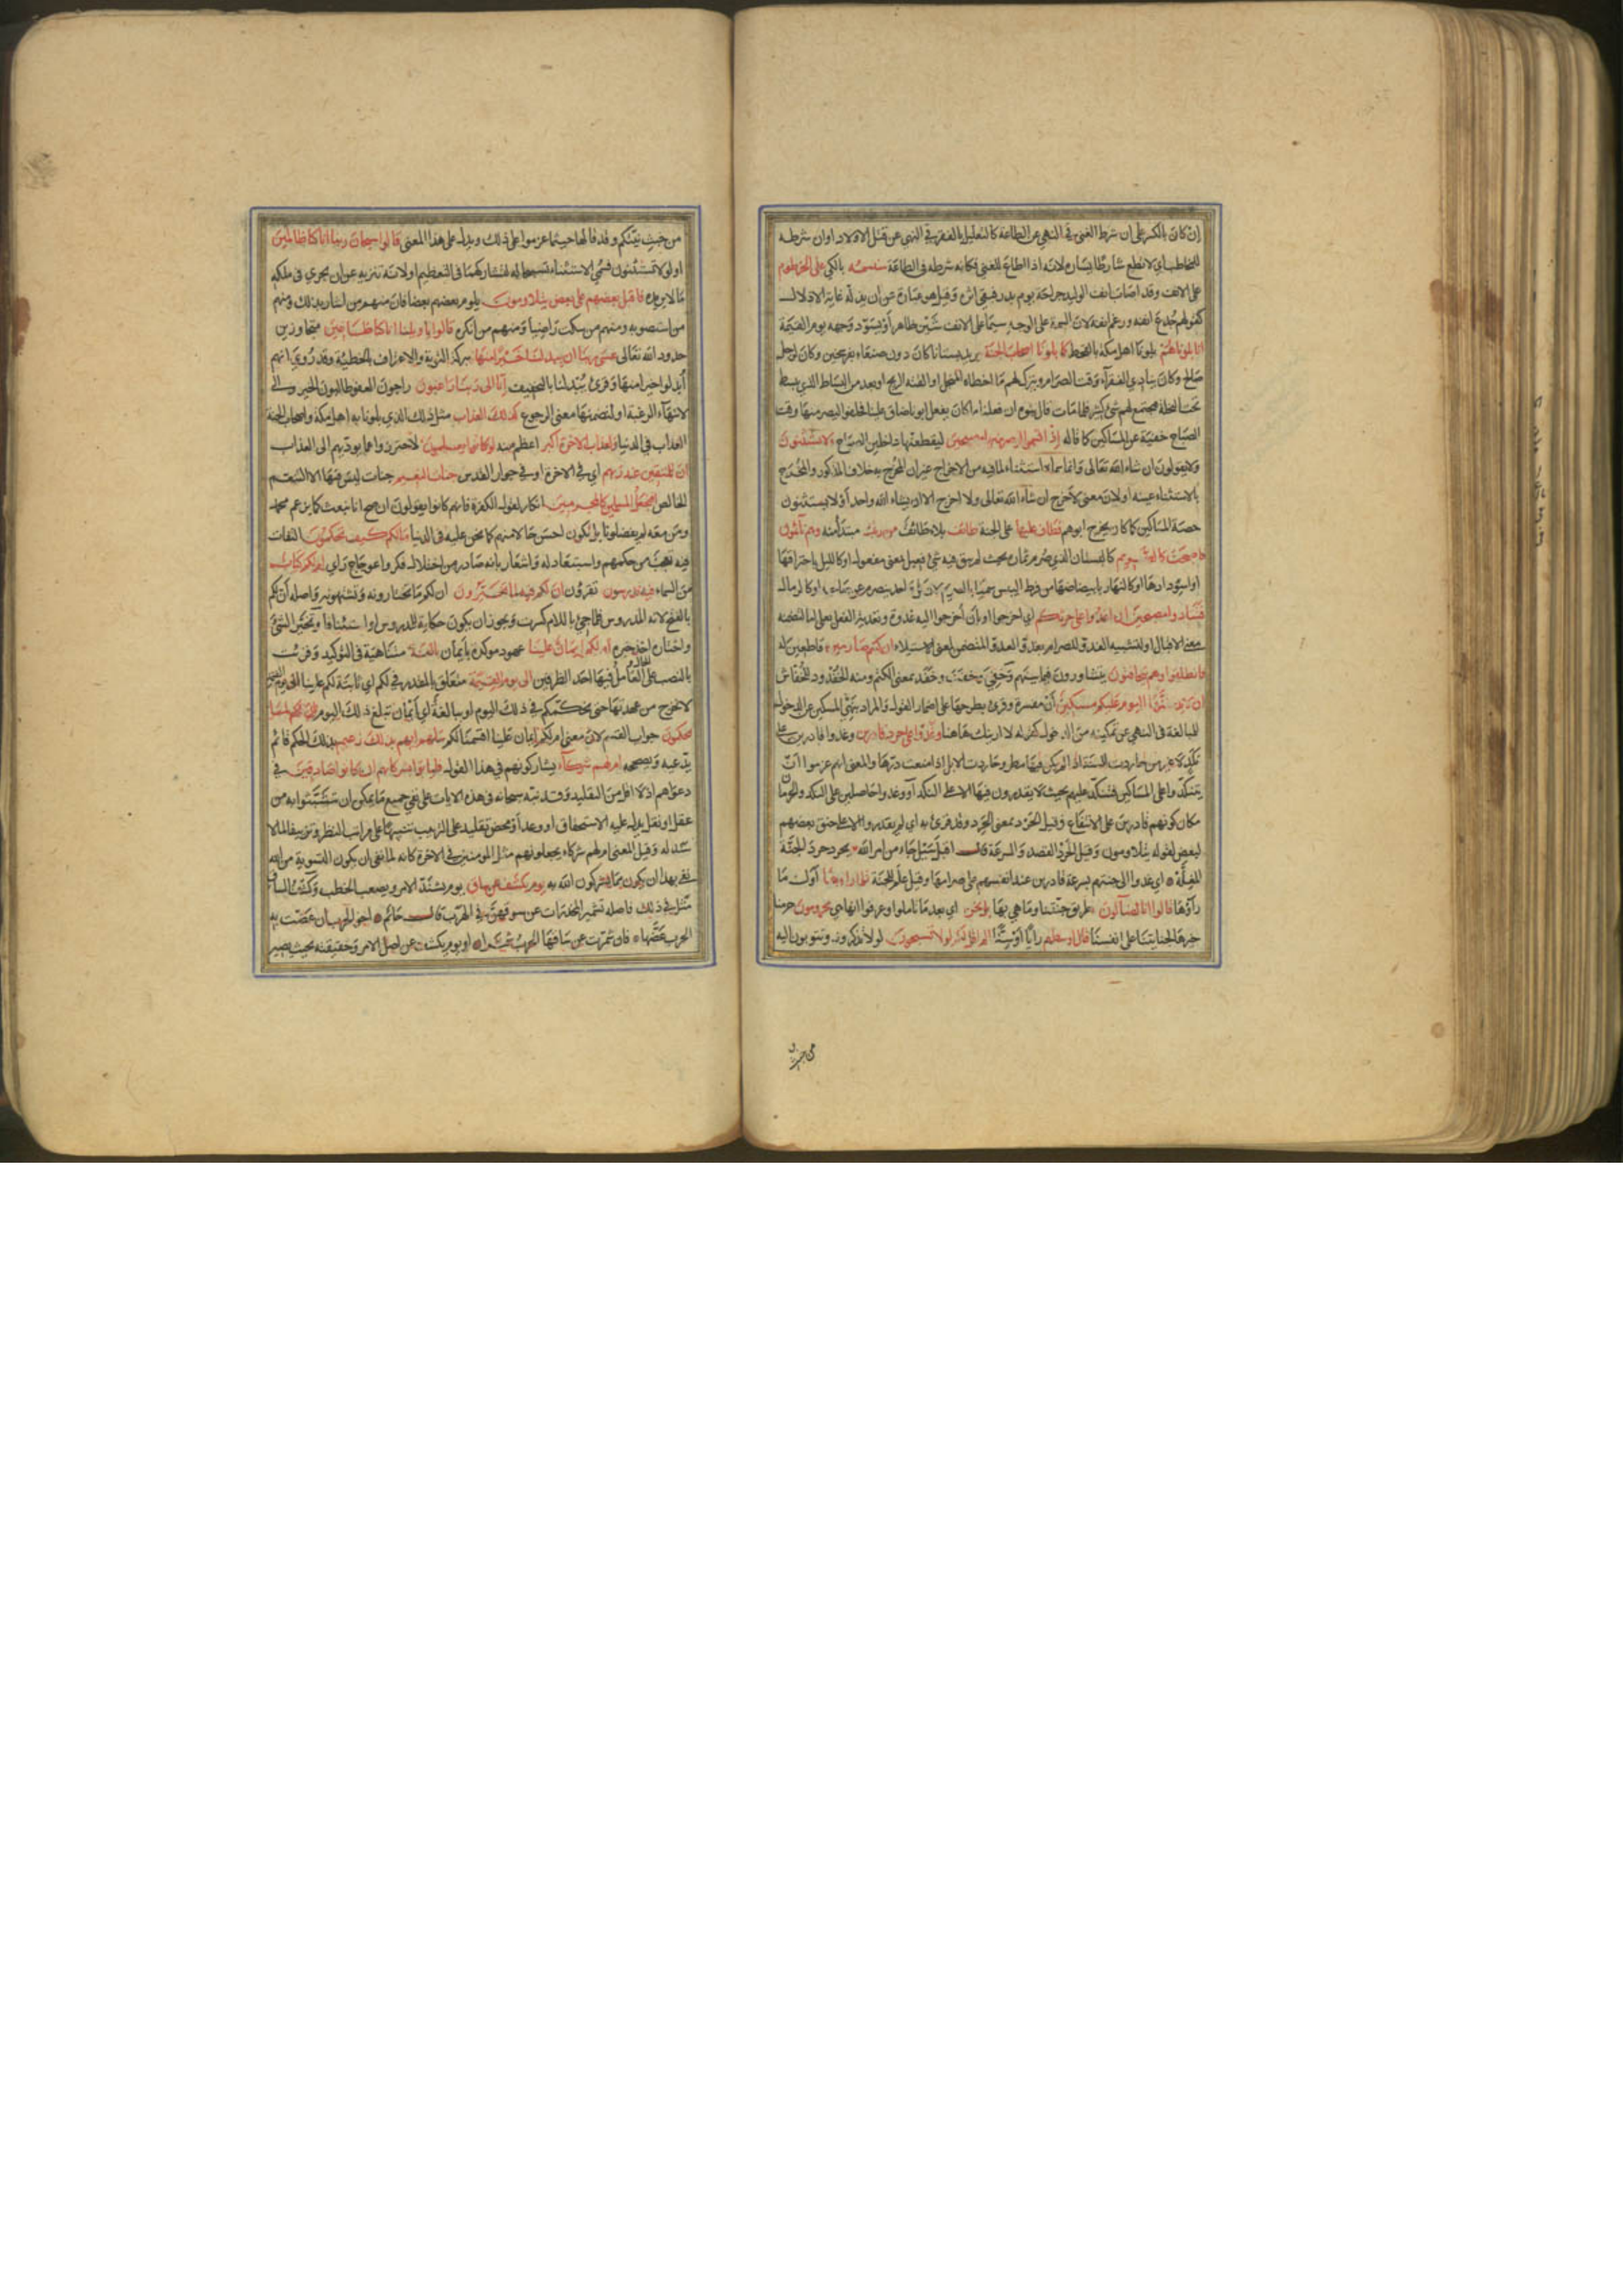 إن كان بالكسر على ان شرط الغنى في النهي عن الطاعة كالتعليل بالفقر في النهي عن قتل الاولاد او ان شرطه
للمخاطب اي لا تطع شارطا يساره لانه اذا اطاع للغنى فكانه شرطه في الطاعة سنسمه بالكي على الخرطوم
على الانف وقد اصاب انف الوليد جراحة يوم بدر فبقي اثره وقيل هو عبارة عن ان يذله غاية الاذلال
كقولهم جدع انفه ورغم انفه لان السمة على الوجه سيما على الانف شين ظاهر أو نسود وجهه يوم القيمة
انا بلوناهم بلونا اهل مكة بالقحط كما بلونا اصحاب الجنة يريد بستانا كان دون صنعاء بفرسخين وكان لرجل
صالح وكان ينادي الفقرآء وقت الصرام ويترك لهم ما اخطاه المنجل او القته الريح او بعد من البساط الذي يبسط
تحت النخلة فيجتمع لهم شئ كثير فلما مات قال بنوه ان فعلنا ما كان يفعل ابونا ضاق علينا فحلفوا ليصرمنها وقت
الصباح خفية عن المساكين كما قال اذ اقسموا ليصرمنها مصبحين ليقطعنها داخلين الصباح ولا يستثنون
ولا يقولون ان شاء الله تعالى وانما سماه استثناء لما فيه من الاخراج غير ان المخرج به خلاف المذكور والمخرج
بالاستثناء عينه او لان معنى لاخرج ان شآء الله تعالى ولا اخرج الا ان يشاء الله واحد أو لا يستثنون
حصة المساكين كما كان يخرج ابوهم فطاف عليها على الجنة طائف بلاء طائف من ربك مبتدأ منه وهم نائمون
فاصبحت كالصريم كالبستان الذي صرم ثماره بحيث لم يبق فيه شئ فعيل بمعنى مفعول او كالليل باحتراقها
او اسودادها او كالنهار بابيضاضها من فرط اليبس سميا بالصريم لان كلا احد ينصرم عن صاحبه او كالرمال
فتنادوا مصبحين ان اغدوا على حرثكم اي اخرجوا او بأن أخرجوا اليه غدوة وتعدية الفعل بعلى اما لتضمنه
معنى الاقبال او لتشبيه الغدو للصرام بغدو العدو المتضمن لمعنى الاستيلاء ان كنتم صارمين قاطعين له
فانطلقوا وهم يتخافتون يتشاورون فيما بينهم وخفى وخفت وخفد بمعنى الكتم ومنه الخفدود للخفاش
ان لا يدخلنها اليوم عليكم مسكين أن مفسرة وقرئ بطرحها على اضمار القول والمراد بنهي المسكين عن الدخول
المبالغة في النهي عن تمكينه من الدخول كقوله لا ارينك هاهنا وغدوا على حرد قادرين وغدوا قادرين على
نكد لا غير من حاردت السنة اذا لم يكن فيها مطر وحاردت الابل اذا منعت درها والمعنى انهم عزموا ان
يتنكدوا على المساكين فتنكد عليهم بحيث لا يقدرون فيها الا على النكد أو وغدوا حاصلين على النكد والحرمان
مكان كونهم قادرين على الانتفاع وقيل الحرد بمعنى الحرد وقد قرئ به اي لم يقدروا الا على حنق بعضهم
لبعض لقوله يتلاومون وقيل الحرد القصد والسرعة قال اقبل سيل جاء من امر الله يحرد حرد الجنة
المغلة اي غدوا الى جنتهم بسرعة قادرين عند انفسهم على صرامها وقيل علم للجنة فلما راوها اول ما
رآوها قالوا انا لضآلون طريق جنتنا وما هي بها بل نحن اي بعد ما تاملوا وعرفوا انها هي محرومون حرمنا
خيرها لجنايتنا على انفسنا قال اوسطهم رأيا او سنا الم اقل لكم لولا تسبحون لولا تذكرونه وتتوبون اليه
من خبث
من خبث نيتكم وقد قالها حيثما عزموا على ذلك ويدل على هذا المعنى قالوا سبحان ربنا انا كنا ظالمين
او لولا تستثنون فسمي الاستثناء تسبيحا لتشاركهما في التعظيم او لانه تنزيه عن ان يجري في ملكه
ما لا يريده فاقبل بعضهم على بعض يتلاومون يلوم بعضهم بعضا فان منهم من اشار بذلك ومنهم
من استصوبه ومنهم من سكت راضيا ومنهم من انكره قالوا يا ويلنا انا كنا طاغين متجاوزين
حدود الله تعالى عسى ربنا ان يبدلنا خيرا منها ببركة التوبة والاعتراف بالخطيئة وقد روي انهم
أبدلوا خيرا منها وقرئ يبدلنا بالتخفيف إنا الى ربنا راغبون راجون العفو طالبون الخير والى
لانتهآء الرغبة او لتضمنها معنى الرجوع كذلك العذاب مثل ذلك الذي بلونا به اهل مكة واصحاب الجنة
العذاب في الدنيا ولعذاب الاخرة اكبر اعظم منه لو كانوا يعلمون لاحترزوا عما يوديهم الى العذاب
ان للمتقين عند ربهم اي في الاخرة او في جوار القدس جنات النعيم جنات ليس فيها الا التنعم
الخالص افنجعل المسلمين كالمجرمين انكار لقول الكفرة فانهم كانوا يقولون ان صح انا نبعث كما يزعم محمد
ومن معه لم يفضلونا بل نكون احسن حالا منهم كما نحن عليه في الدنيا ما لكم كيف تحكمون التفات
فيه تعجب من حكمهم واستبعاد له واشعار بانه صادر من اختلال فكر واعوجاج رأي ام لكم كتاب
من السماء فيه تدرسون تقرؤن ان لكم فيه لما تخيرون ان لكم ما تختارونه وتشتهونه واصله أن لكم
بالفتح لانه المدروس فلما جئ باللام كسرت ويجوز ان يكون حكاية للمدروس او استئنافا وتخير الشئ
واختاره اخذ خيره ام لكم ايمان علينا عهود موكدة بأيمان بالغة متناهية في التوكيد وقرئت
بالنصب على الحال والعامل فيها احد الظرفين الى يوم القيمة متعلق بالمقدر في لكم اي ثابتة لكم علينا الى يوم القيمة
لا تخرج من عهدتها حتى نحكمكم في ذلك اليوم او ببالغة اي أيمان تبلغ ذلك اليوم ان لكم لما
تحكمون جواب القسم لان معنى ام لكم ايمان علينا اقسمنا لكم سلهم ايهم بذلك زعيم بذلك الحكم قائم
يدعيه ويصححه ام لهم شركآء يشاركونهم في هذا القول فليأتوا بشركائهم ان كانوا صادقين في
دعواهم اذ لا اقل من التقليد وقد نبه سبحانه في هذه الايات على نفي جميع ما يمكن ان يتشبثوا به من
عقل او نقل يدل عليه الاستحقاق او وعد أو محض تقليد على الترتيب تنبيها على مراتب النظر وتزييفا لما لا
سند له وقيل المعنى ام لهم شركاء يجعلونهم مثل المومنين في الاخرة كانه لما نفى ان يكون التسوية من الله
نفى بهذا ان يكون مما يشركون الله به يوم يكشف عن ساق يوم يشتد الامر ويصعب الخطب وكشف الساق
مثل في ذلك فاصله تشمير المخدرات عن سوقهن في الهرب قال حاتم اخو الحرب ان عضت به
الحرب عضها فان شمرت عن ساقها الحرب شمرا او يوم يكشف عن اصل الامر وحقيقته بحيث يصير